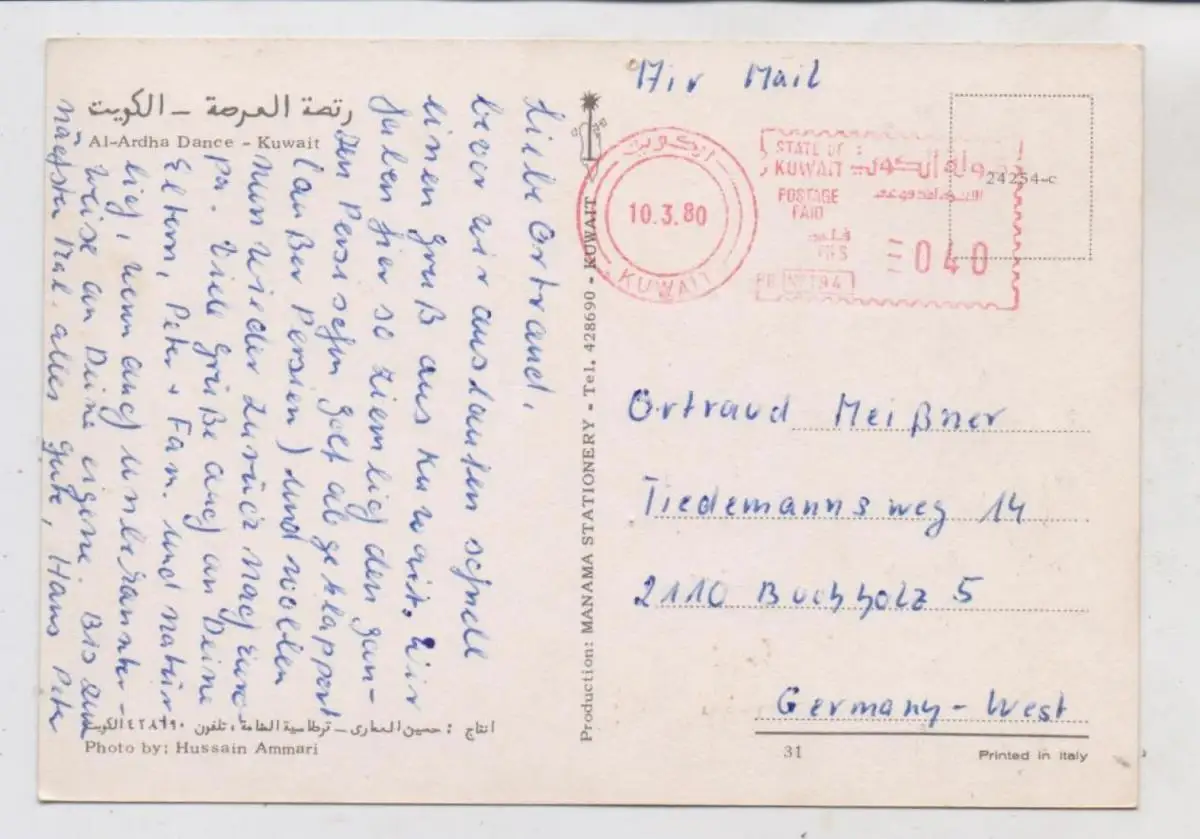 رقصة العرضة – الكويت
Al-Ardha Dance - Kuwait
Liebe Ortraud,
bevor wir auslaufen schnell
einen Gruß aus Kuwait. Wir
haben hier so ziemlich den gan-
zen Persischen Golf abgeklappert
(außer Persien) und wollen
nun wieder zurück nach Euro
pa. Viele Grüße auch an Deine
Eltern, Peter + Fam. und natür
lich, wenn auch unbekannter-
weise an Deine eigene. Bis zum
nächsten Mal. alles Gute, Hans Peter
انتاج : حسين العماري – قرطاسية المنامة ، تلفون ٤٢٨٦٩٠ الكويت
Photo by: Hussain Ammari
Production: MANAMA STATIONERY - Tel. 428690 - KUWAIT
Air Mail
الكويت
10.3.80
KUWAIT
STATE OF
KUWAIT دولة الكويت
POSTAGE
PAID
فلس
FILS
= 040
PB 194
24254-c
Ortraud Meißner
Tiedemannsweg 14
2110 Buchholz 5
Germany-West
31
Printed in Italy